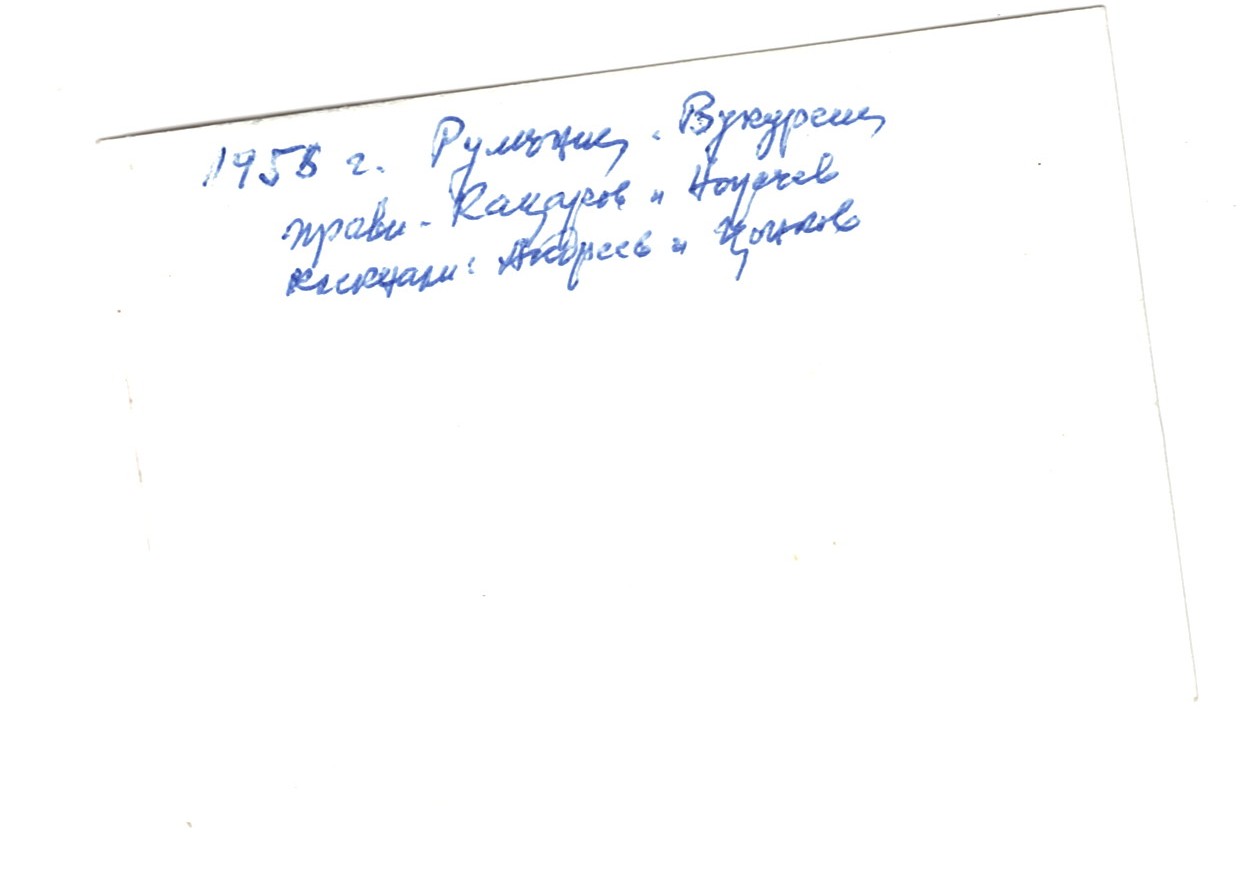 1958 г. Румъния, Букурещ
прави - Кацаров и
клекнали: Андреев и Цонков